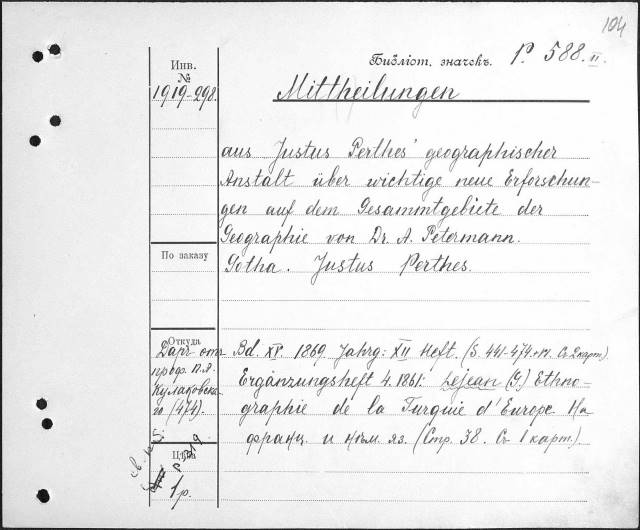 104
Библіот. значекъ. P. 588. II.
Инв.
№
1919-298.
Mittheilungen
aus Justus Perthes' geographischer
Anstalt über wichtige neue Erforschun-
gen auf dem Gesammtgebiete der
Geographie von Dr. A. Petermann.
Gotha. Justus Perthes.
По заказу
Откуда
Даръ отъ
проф. П.А.
Кулаковска-
го (474).
Bd. XV. 1869. Jahrg: XII Heft. (S. 441-474. Съ 2 карт.).
Ergänzungsheft 4. 1861: Lejean (G.) Ethno-
graphie de la Turquie d'Europe. На
франц. и нѣм. яз. (Стр. 38. Съ 1 карт.).
Цѣна
1 р.